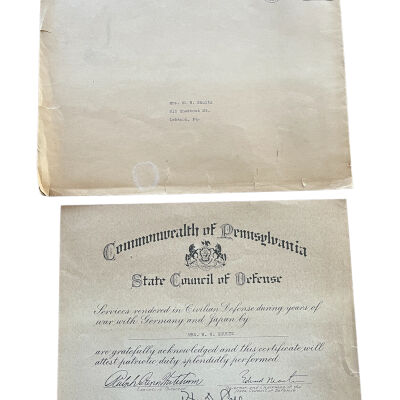 Mrs. H. H. Shultz
Chestnut St.
Lebanon, Pa.
Commonwealth of Pennsylvania
State Council of Defense
Services rendered in Civilian Defense during years of
war with Germany and Japan by
MRS. H. H. SHULTZ
are gratefully acknowledged and this certificate will
attest patriotic duty splendidly performed.
Edward Martin